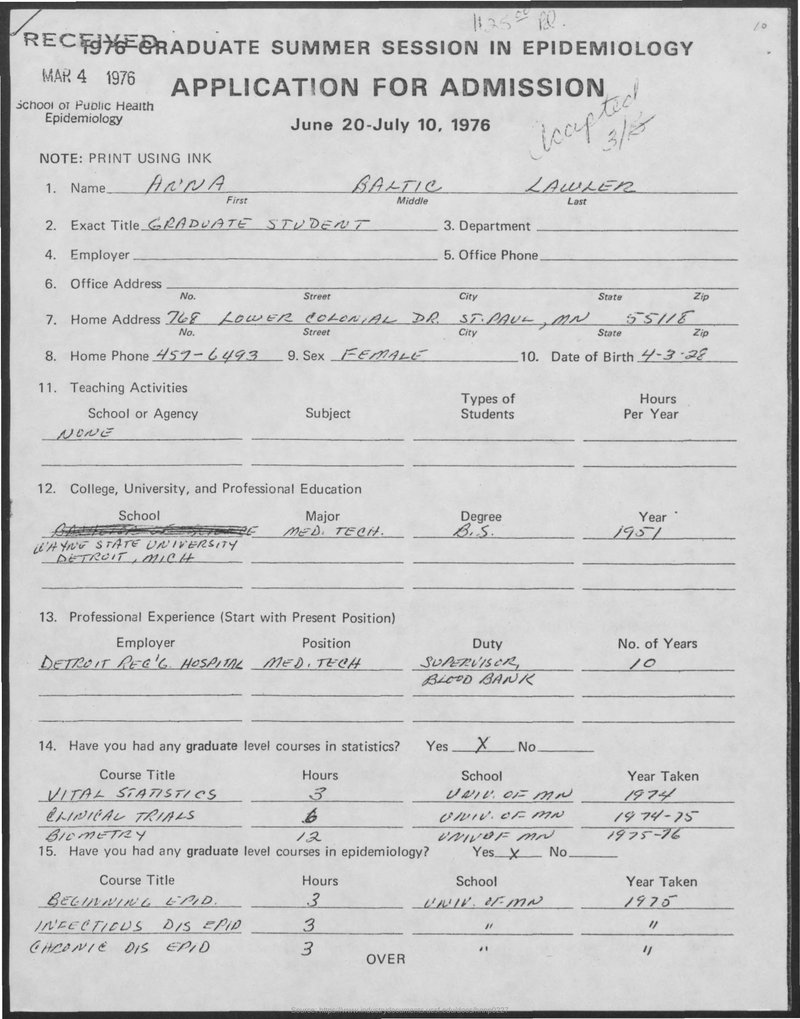 1125 00 PD.
10
RECEIVED
1976 GRADUATE SUMMER SESSION IN EPIDEMIOLOGY
MAR 4 1976
APPLICATION FOR ADMISSION
School of Public Health
Epidemiology
June 20-July 10, 1976
Accepted
3/15
NOTE: PRINT USING INK
1. Name ANNA BALTIC LAWLER
First Middle Last
2. Exact Title GRADUATE STUDENT 3. Department
4. Employer 5. Office Phone
6. Office Address
No. Street City State Zip
7. Home Address 768 LOWER COLONIAL DR. ST. PAUL, MN 55118
No. Street City State Zip
8. Home Phone 457-6493 9. Sex FEMALE 10. Date of Birth 4-3-28
11. Teaching Activities
School or Agency Subject Types of Students Hours Per Year
NONE
12. College, University, and Professional Education
School Major Degree Year
BACHELOR OF SCIENCE MED. TECH. B.S. 1951
WAYNE STATE UNIVERSITY
DETROIT, MICH
13. Professional Experience (Start with Present Position)
Employer Position Duty No. of Years
DETROIT REC'G. HOSPITAL MED. TECH SUPERVISOR, 10
BLOOD BANK
14. Have you had any graduate level courses in statistics? Yes X No
Course Title Hours School Year Taken
VITAL STATISTICS 3 UNIV. OF MN 1974
CLINICAL TRIALS 6 UNIV. OF MN 1974-75
BIOMETRY 12 UNIV OF MN 1975-76
15. Have you had any graduate level courses in epidemiology? Yes X No
Course Title Hours School Year Taken
BEGINNING EPID. 3 UNIV. OF MN 1975
INFECTIOUS DIS EPID 3 " "
CHRONIC DIS EPID 3 " "
OVER